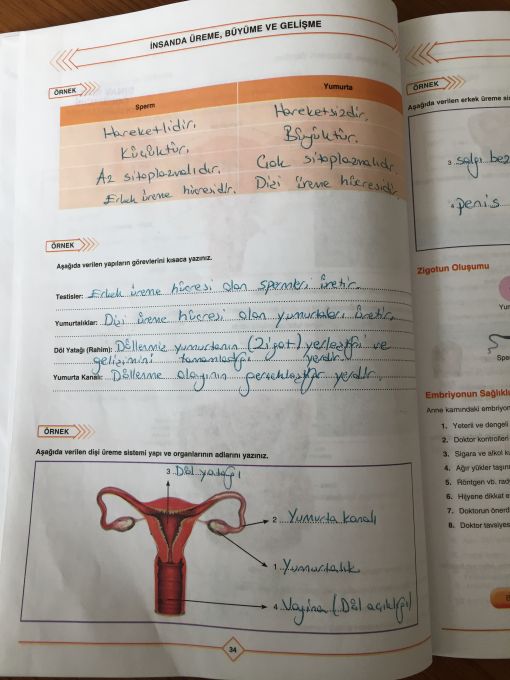 İNSANDA ÜREME, BÜYÜME VE GELİŞME
ÖRNEK
Sperm Yumurta
Hareketlidir. Hareketsizdir.
Küçüktür. Büyüktür.
Az sitoplazmalıdır. Çok sitoplazmalıdır.
Erkek üreme hücresidir. Dişi üreme hücresidir.
ÖRNEK
Aşağıda verilen yapıların görevlerini kısaca yazınız.
Testisler: Erkek üreme hücresi olan spermleri üretir.
Yumurtalıklar: Dişi üreme hücresi olan yumurtaları üretir.
Döl Yatağı (Rahim): Döllenmiş yumurtanın (Zigot) yerleştiği ve
gelişimini tamamladığı yerdir.
Yumurta Kanalı: Döllenme olayının gerçekleştiği yerdir.
ÖRNEK
Aşağıda verilen dişi üreme sistemi yapı ve organlarının adlarını yazınız.
3 Döl yatağı
2 Yumurta kanalı
1 Yumurtalık
4 Vajina (Döl açıklığı)
34
ÖRNEK
Aşağıda verilen erkek üreme sis
3 salgı bez
4 penis
Zigotun Oluşumu
Yu
Spe
Embriyonun Sağlıklı
Anne karnındaki embriyon
1. Yeterli ve dengeli
2. Doktor kontrolleri
3. Sigara ve alkol ku
4. Ağır yükler taşını
5. Röntgen vb. rad
6. Hijyene dikkat e
7. Doktorun önerd
8. Doktor tavsiyes